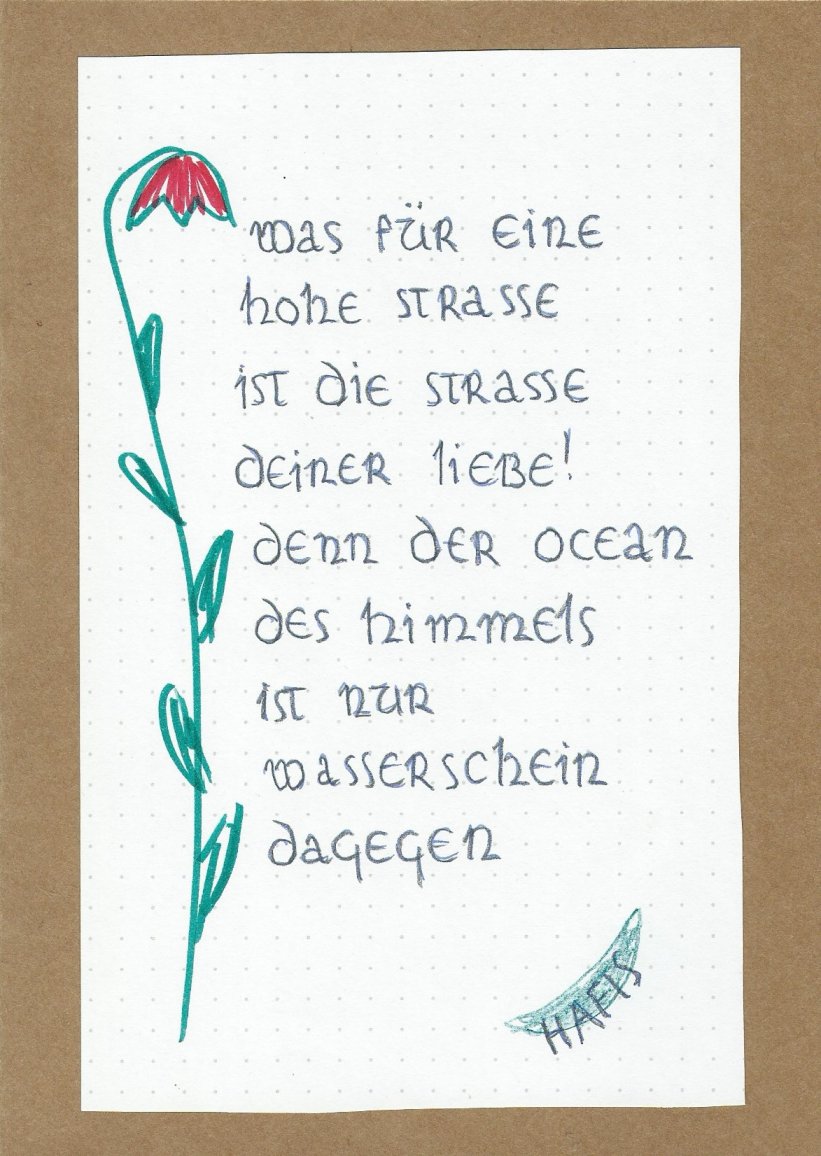 was für eine
hohe strasse
ist die strasse
deiner liebe!
denn der ocean
des himmels
ist nur
wasserschein
dagegen
HAFIS